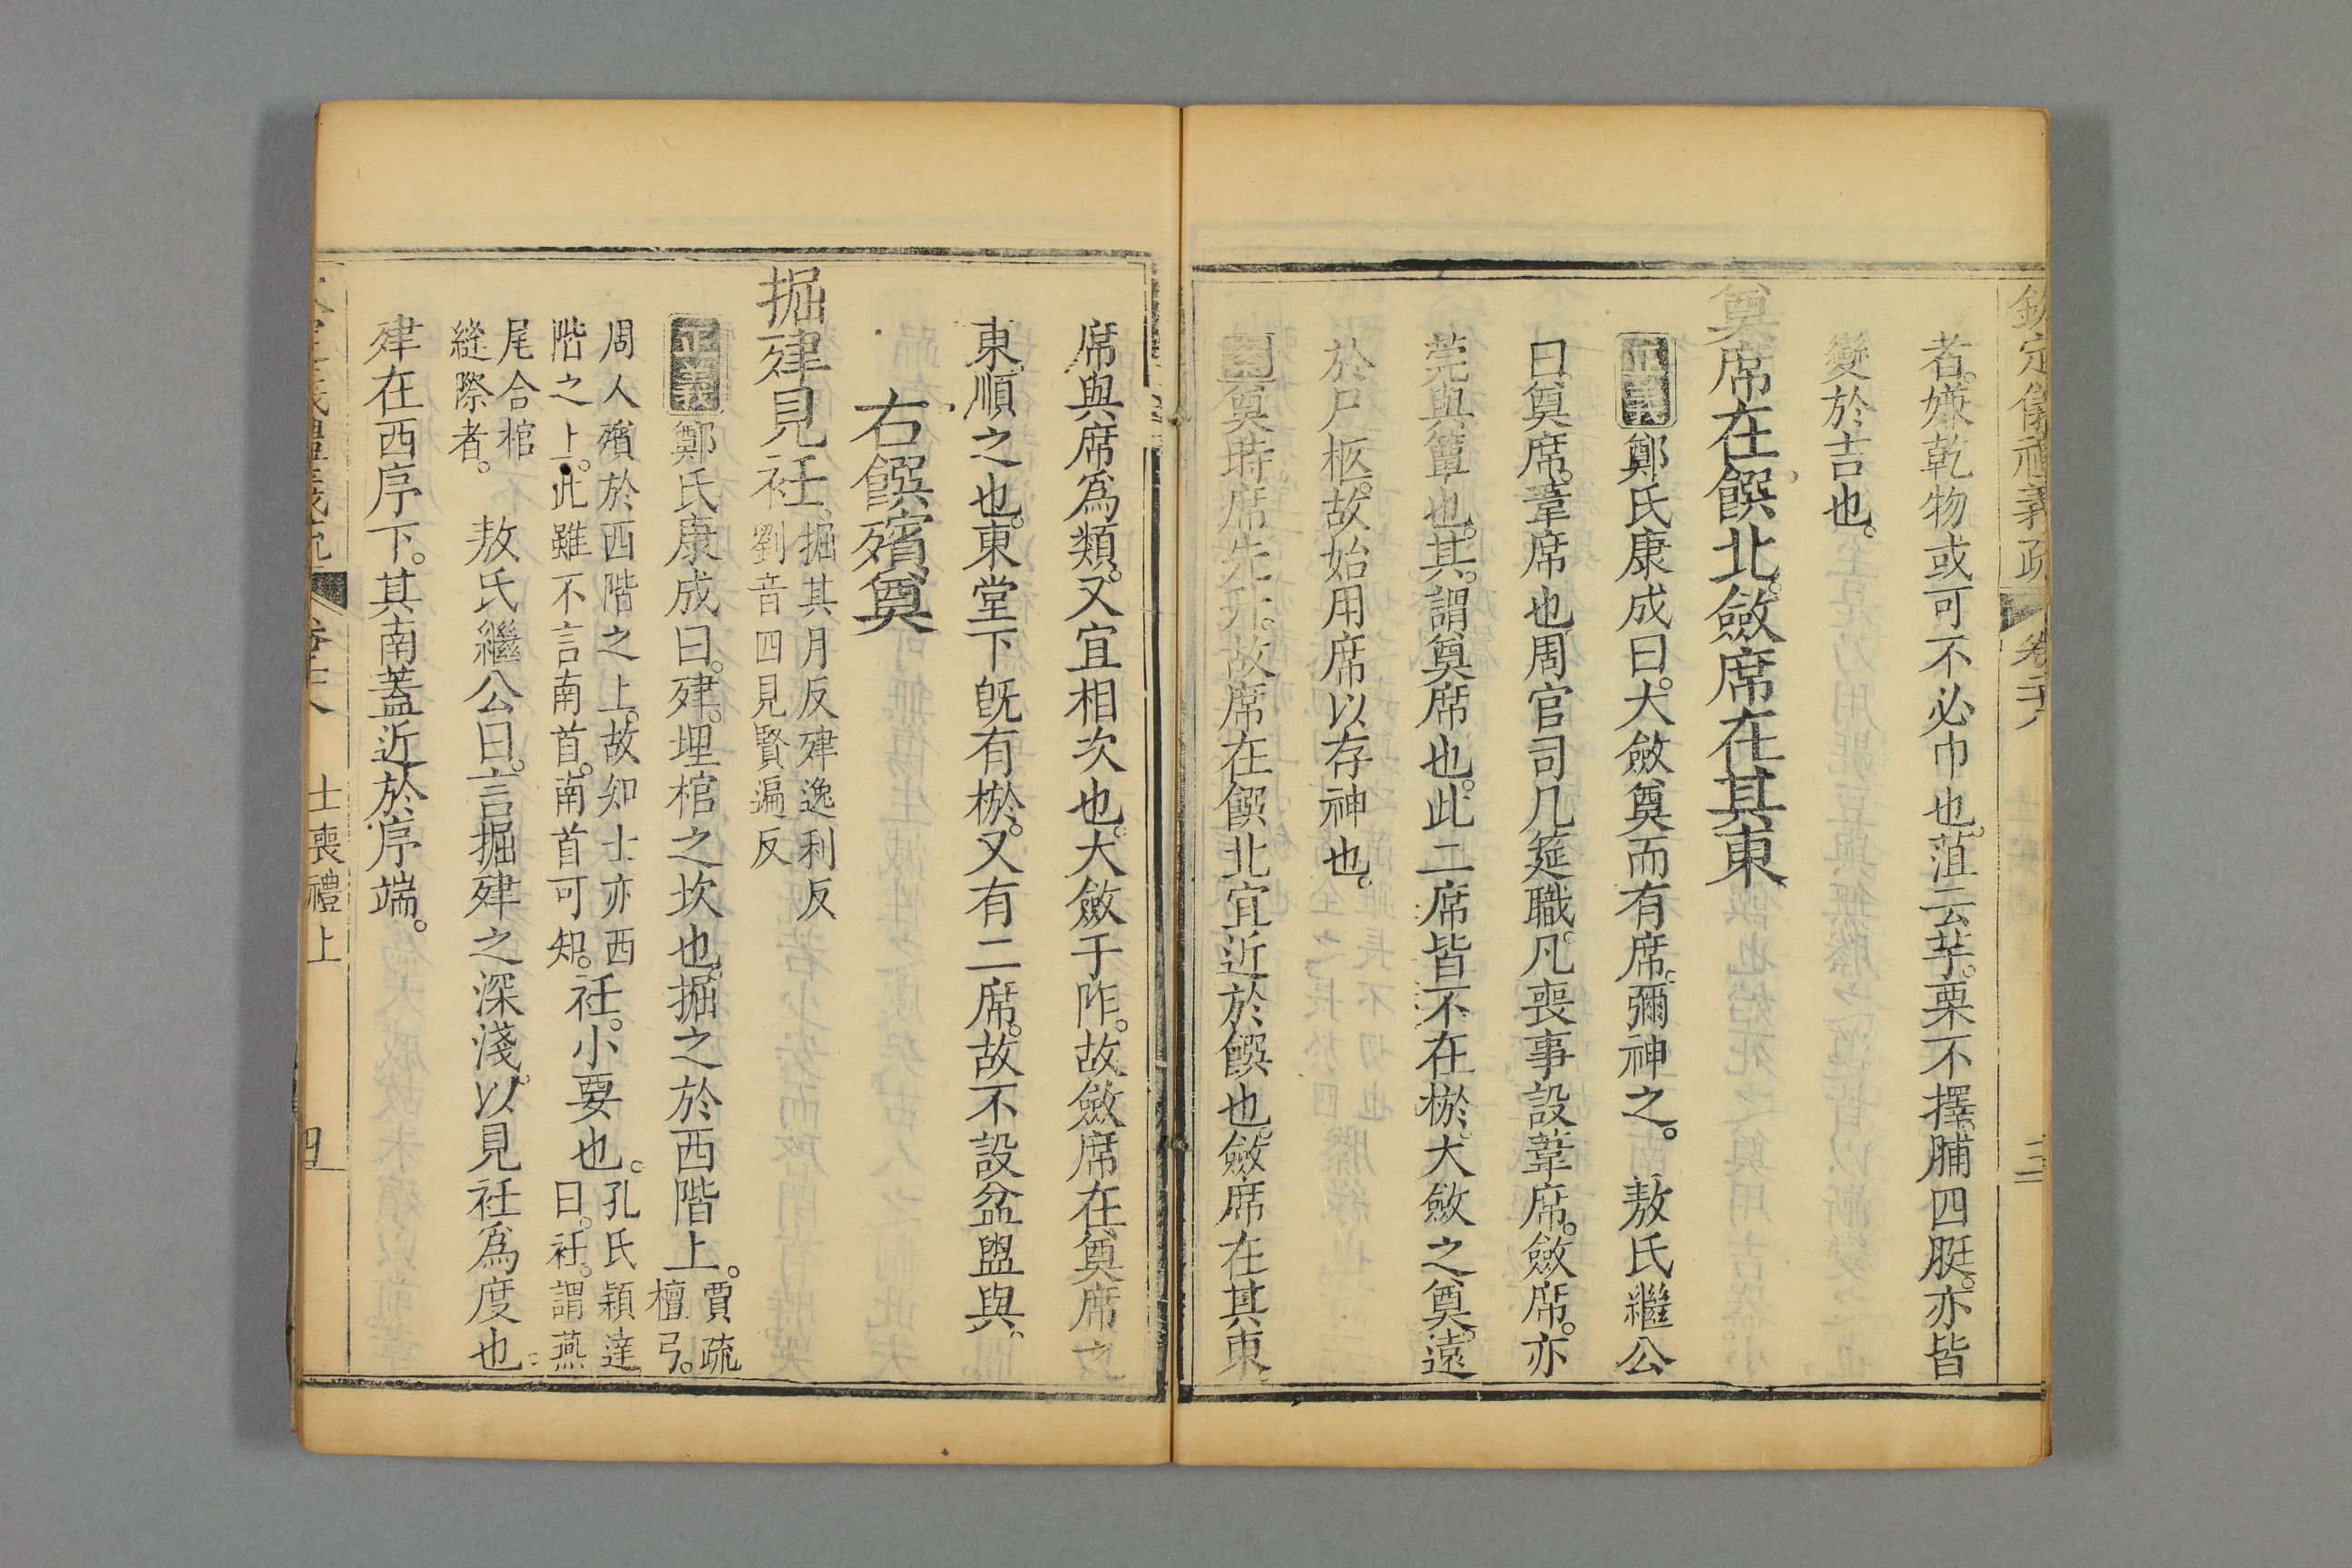 欽定儀禮義疏 卷二十八 三
者。嫌乾物或可不必巾也。菹云芋。栗不擇。脯四脡。亦皆
變於吉也。
奠席在饌北。斂席在其東
正義鄭氏康成曰。大斂奠而有席。彌神之。 敖氏繼公
曰。奠席。葦席也周官司几筵職。凡喪事設葦席。斂席。亦
莞與簟也。其。謂奠席也。此二席皆不在棜。大斂之奠。遠
於尸柩。故始用席以存神也。
奠時席先升。故席在饌北宜近於饌也。斂席在其東。
席與席爲類。又宜相次也。大斂于阼。故斂席在奠席之
東。順之也。東堂下旣有棜。又有二席。故不設盆盥與。
右饌殯奠
掘肂見衽。掘其月反肂逸利反
劉音四見賢遍反
正義鄭氏康成曰。肂。埋棺之坎也。掘之於西階上。賈疏
檀弓。
周人殯於西階之上。故知士亦西
階之上。此雖不言南首。南首可知。衽。小要也。孔氏穎達
曰。衽。謂燕
尾合棺
縫際者。 敖氏繼公曰。言掘肂之深淺。以見衽爲度也
肂在西序下。其南蓋近於序端。
士喪禮上 四